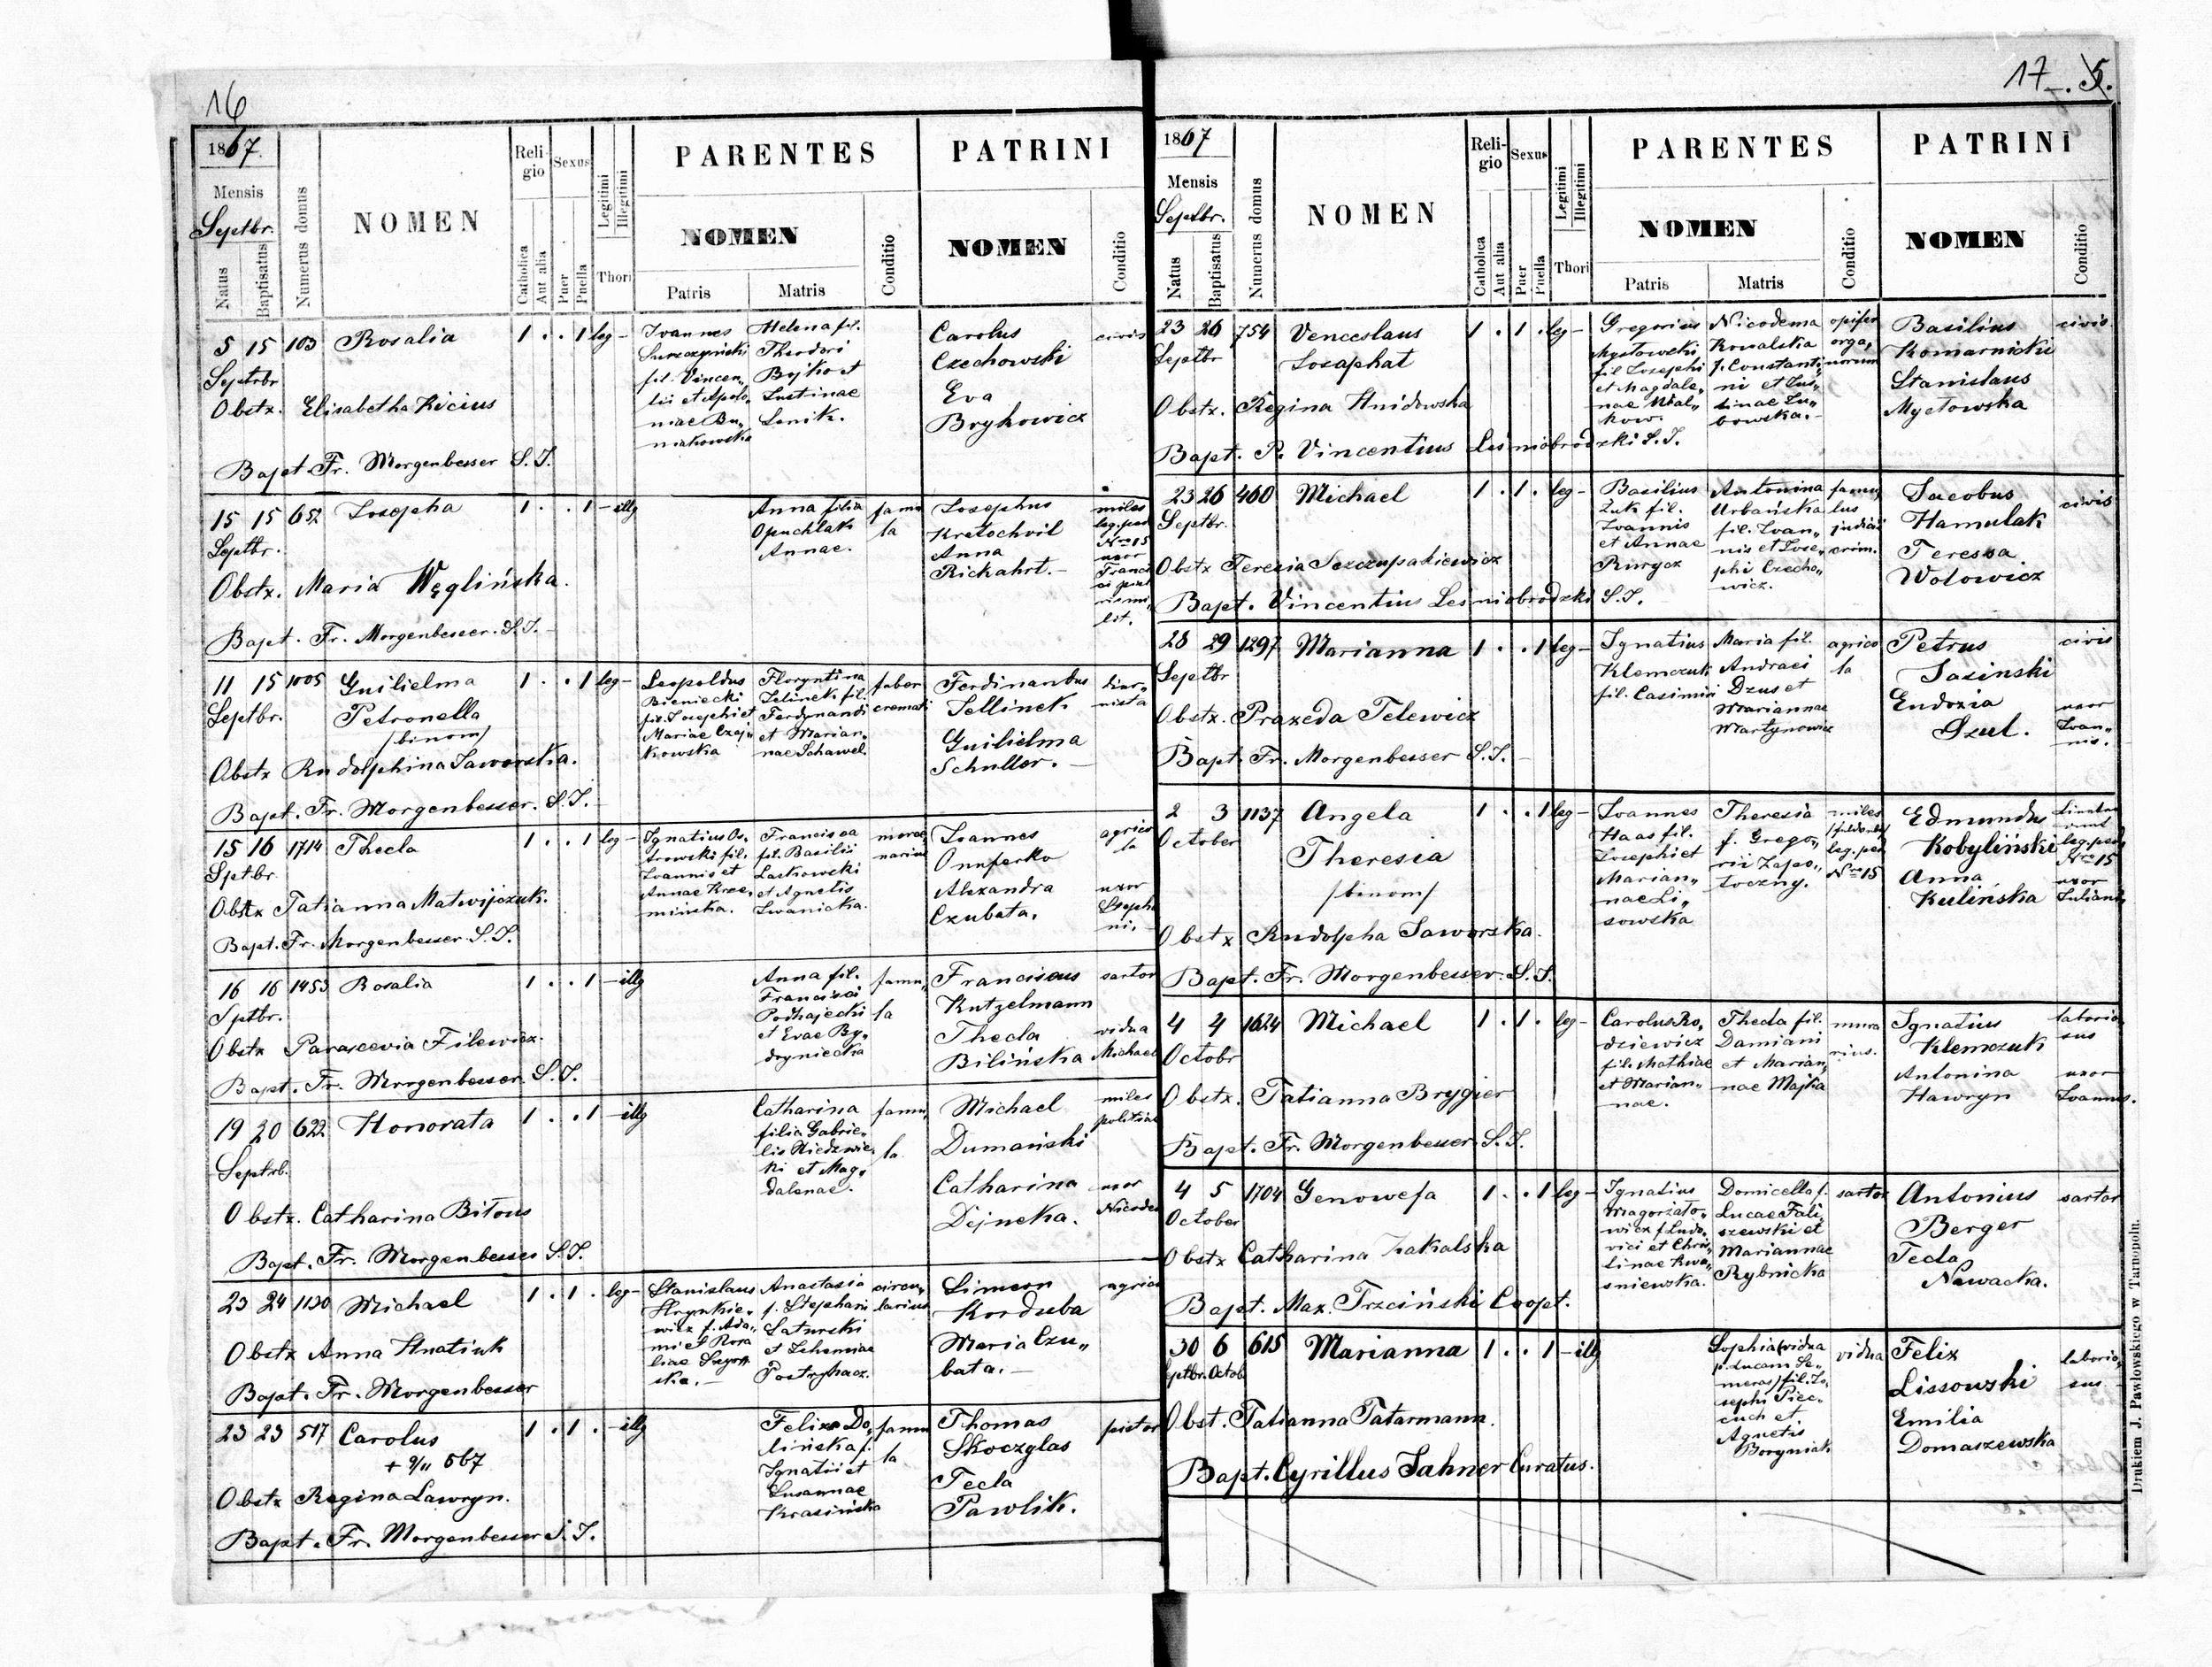 16
1867.
Mensis
Septbr.
Natus
Baptisatus
Numerus domus
NOMEN
Reli-
gio
Catholica
Aut alia
Sexus
Puer
Puella
Legitimi
Illegitimi
Thori
PARENTES
NOMEN
Patris
Matris
Conditio
PATRINI
NOMEN
Conditio
5 15 103 Rosalia 1 . . 1 leg -
Septbr
Obstx. Elisabetha Kicius
Bapt. Fr. Morgenbesser S.J.
Ioannes
fil. Vincen„
tii et Apolo„
niae Bu„
niakowska
Helena fil.
Theodori
Bojko et
Justinae
Senik.
Carolus
Czechowski
Eva
Brykowicz
civis
15 15 652 Josepha 1 . . 1 - illg
Septbr.
Obstx. Maria Węglińska.
Bapt. Fr. Morgenbesser. S.J. -
Anna filia
Opuchlak
Annae.
famu
la
Josephus
Kratochvil
Anna
Rickahrt. -
miles
leg. ped
Nro 15
uxor
11 15 1005 Guilielma 1 . . 1 leg -
Septbr. Petronella
/binom/
Obstx Rudolphina Jaworska.
Bapt. Fr. Morgenbesser. S.J.
Leopoldus
Bieniecki
fil. Josephi et
Mariae Czaj„
kowska
Floryntina
Jelinek fil.
Ferdynandi
et Marian„
nae Schawel.
faber
cremati
Ferdinandus
Jellinek
Guilielma
Schuller. -
15 16 1714 Thecla 1 . . 1 leg -
Sptbr
Obstx Tatianna Matwijczuk.
Bapt. Fr. Morgenbesser S.J.
Ignatius Os„
trowski fil.
Ioannis et
Annae Krze„
mińska.
Francisca
fil. Basilii
Laskowski
et Agnetis
Iwanicka.
merce
narius
Ioannes
Onuferko
Alexandra
Czubata.
agrico
la
uxor
Stepha
ni. -
16 16 1453 Rosalia 1 . . 1 - illg
Sptbr.
Obstx Parascevia Filewicz.
Bapt. Fr. Morgenbesser S.J.
Anna fil.
Francisci
Podhajecki
et Evae By„
dryniecka
famu„
la
Franciscus
Kutzelmann
Thecla
Bilińska
sartor
vidua
Michael
19 20 622 Honorata 1 . . 1 - illg
Septrb.
Obstx. Catharina Bitous
Bapt. Fr. Morgenbesser S.J.
Catharina
filia Gabrie„
lis Niedzwie„
ki et Mag„
dalenae.
famu„
la
Michael
Dumański
Catharina
Dejneka.
miles
politiae
uxor
Nicodem
23 24 1130 Michael 1 . 1 . leg -
Obstx Anna Hnatiuk
Bapt. Fr. Morgenbesser
Stanislaus
Hrynkie„
wicz f. Ada„
mi et Rosa
liae
ska. -
Anastasia
f. Stephani
Saturski
et
Postryhacz.
circu„
larius
Simeon
Korduba
Maria Czu„
bata. -
agrico
23 23 517 Carolus 1 . 1 . - illg
+ 9/11 867
Obstx Regina Lawryn.
Bapt. Fr. Morgenbesser S.J.
Felixa Do„
lińska f.
Ignatii et
Susannae
Krasińska
famu
la
Thomas
Skoczglas
Tecla
Pawlik.
pistor
17 . 5.
1867
Mensis
Septbr.
Natus
Baptisatus
Numerus domus
NOMEN
Reli-
gio
Catholica
Aut alia
Sexus
Puer
Puella
Legitimi
Illegitimi
Thori
PARENTES
NOMEN
Patris
Matris
Conditio
PATRINI
NOMEN
Conditio
23 26 754 Venceslaus 1 . 1 . leg -
Septbr Josaphat
Obstx. Regina Hnidowska
Bapt. P. Vincentius Leśniobrodzki S.J.
Gregorius
Mystowski
fil Josephi
et Magdale„
nae Wal„
kow.
Nicodema
Kowalska
f. Constanti„
ni et Jus„
tinae Du„
bowska. -
opifex
orga„
norum
Basilius
Komarnicki
Stanislaus
Mystowska
civis
23 26 460 Michael 1 . 1 . leg -
Septbr.
Obstx Teresia Szczupakiewicz
Bapt. Vincentius Leśniobrodzki S.J.
Basilius
Żuk fil.
Ioannis
et Annae
Ringcz
Antonina
Urbańska
fil. Ioan„
nis et Jose„
phi Czecho„
wicz.
famu„
lus
judicii
crim.
Jacobus
Hamulak
Teressa
Wolowicz
civis
28 29 1297 Marianna 1 . . 1 leg -
Septbr
Obstx. Praxeda Telewicz
Bapt. Fr. Morgenbesser S.J. -
Ignatius
Klemczuk
fil. Casimiri
Maria fil.
Andraei
Dzus et
Mariannae
Martynowicz
agrico
la
Petrus
Jasinski
Eudoxia
Dzul.
civis
uxor
Ioan„
nis.
2 3 1137 Angela 1 . . 1 leg -
October Theresia
/binom/
Obstx Rudolpha Jaworska.
Bapt. Fr. Morgenbesser S.J.
Ioannes
Haas fil.
Josephi et
Marian„
nae Li„
sowska
Theresia
f. Grego„
rii Zapo„
toczny.
miles
leg. ped
Nro 15
Edmundus
Kobyliński
Anna
Kulińska
leg. ped
Nro 15
uxor
Juliani
4 4 1624 Michael 1 . 1 . leg -
Octobr
Obstx. Tatianna Brygier
Bapt. Fr. Morgenbesser S.J.
Carolus Ro„
dziewicz
fil. Mathiae
et Marian„
nae.
Thecla fil.
Damiani
et Marian„
nae Majka
mura
rius.
Ignatius
Klemczuk
Antonina
Hawryn
laborio„
sus
uxor
Ioannis.
4 5 1704 Genowefa 1 . . 1 leg -
October
Obstx Catharina Zakalska
Bapt. Max. Trzciński Coopt.
Ignatius
Magorzato„
wicz f. Ludo„
vici et Chris„
tinae Kwa„
sniewska.
Domicella f.
Lucae Fali
szewski et
Mariannae
Rybnicka
sartor
Antonius
Berger
Tecla
Nowacka.
sartor
30 6 615 Marianna 1 . . 1 - illg
Sptbr. Octob.
Obst. Tatianna Tatarmann.
Bapt. Cyrillus Jahner Curatus.
Sophia (vidua
p. Lucam Se„
meras) fil. Jo„
sephi Piec„
cuch et
Agnetis
Boryniak
vidua
Felix
Lissowski
Emilia
Domaszewska
laborio„
sus
Drukiem J. Pawłowskiego w Tarnopolu.